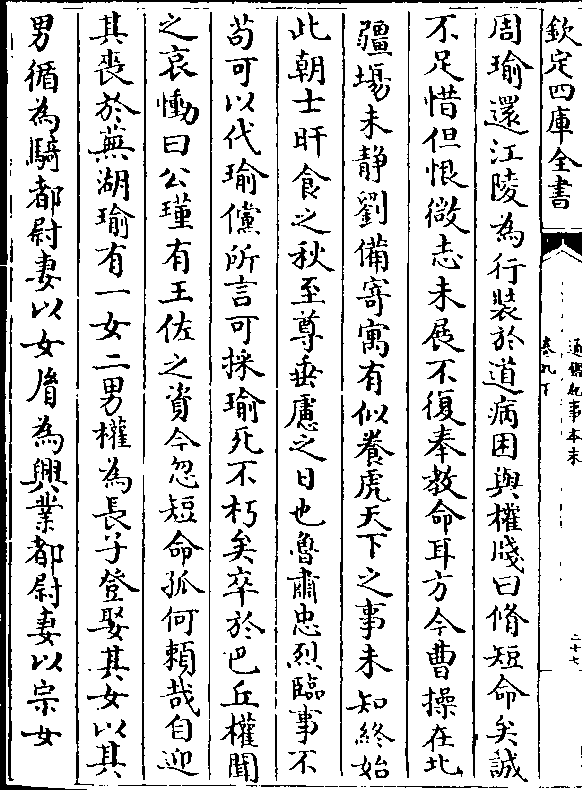 欽定四庫全書
通鑑紀事本末
卷九下
二十七
周瑜還江陵為行裝於道病困與權牋曰脩短命矣誠
不足惜但恨微志未展不復奉教命耳方今曹操在北
疆埸未静劉備寄寓有似養虎天下之事未知終始
此朝士旰食之秋至尊垂慮之日也魯肅忠烈臨事不
苟可以代瑜儻所言可採瑜死不朽矣卒於巴丘權聞
之哀慟曰公瑾有王佐之資今忽短命孤何賴哉自迎
其喪於蕪湖瑜有一女二男權為長子登娶其女以其
男循為騎都尉妻以女㣧為興業都尉妻以宗女